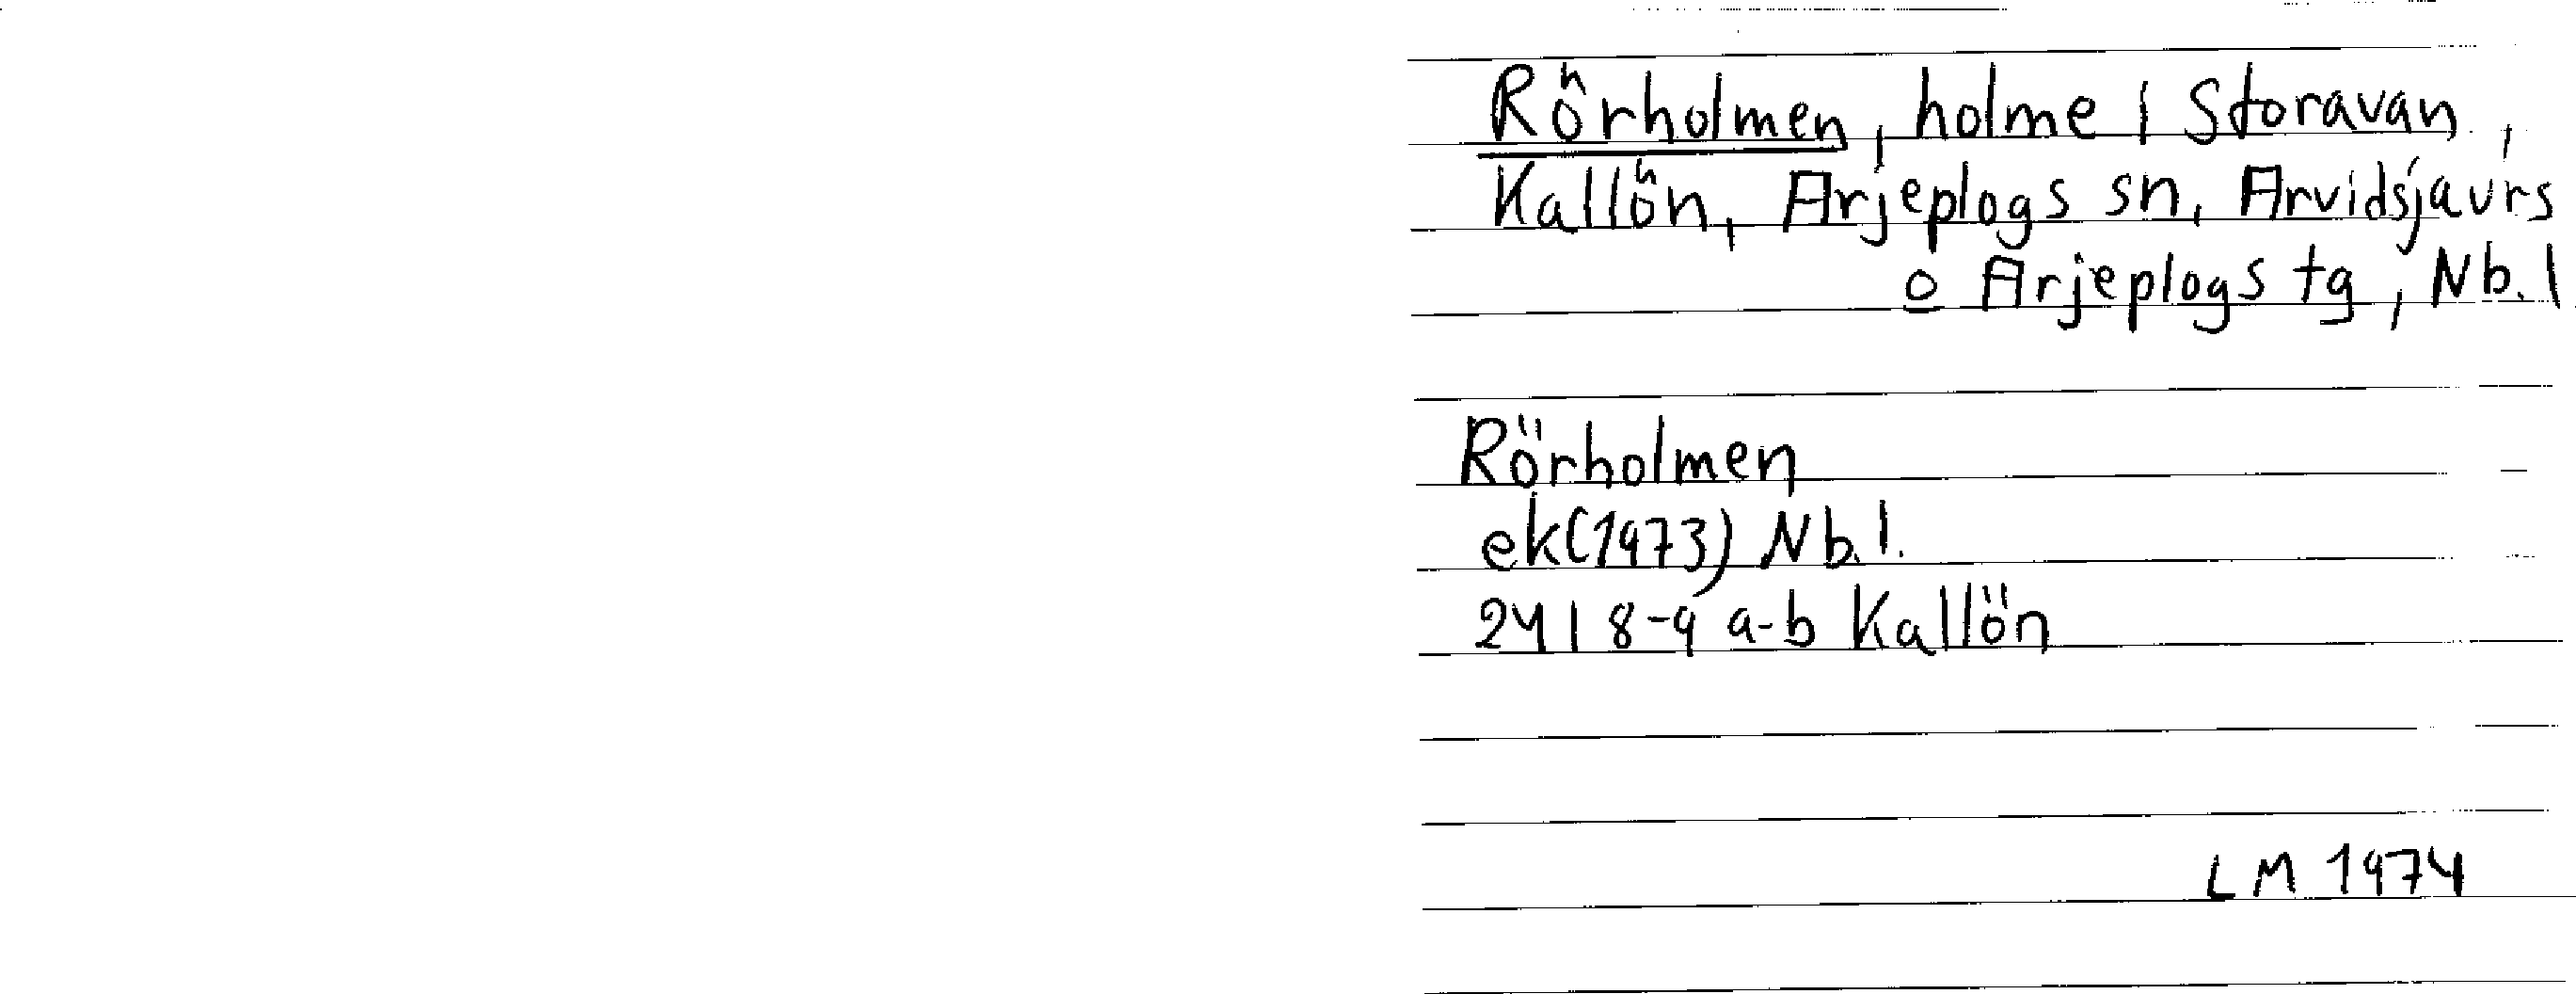 Rörholmen, holme i Storavan,
Kallön, Arjeplogs sn, Arvidsjaurs
o Arjeplogs tg, Nb. l
Rörholmen
ek (1973) Nb. l.
24 I 8-9 a-b Kallön
LM 1974